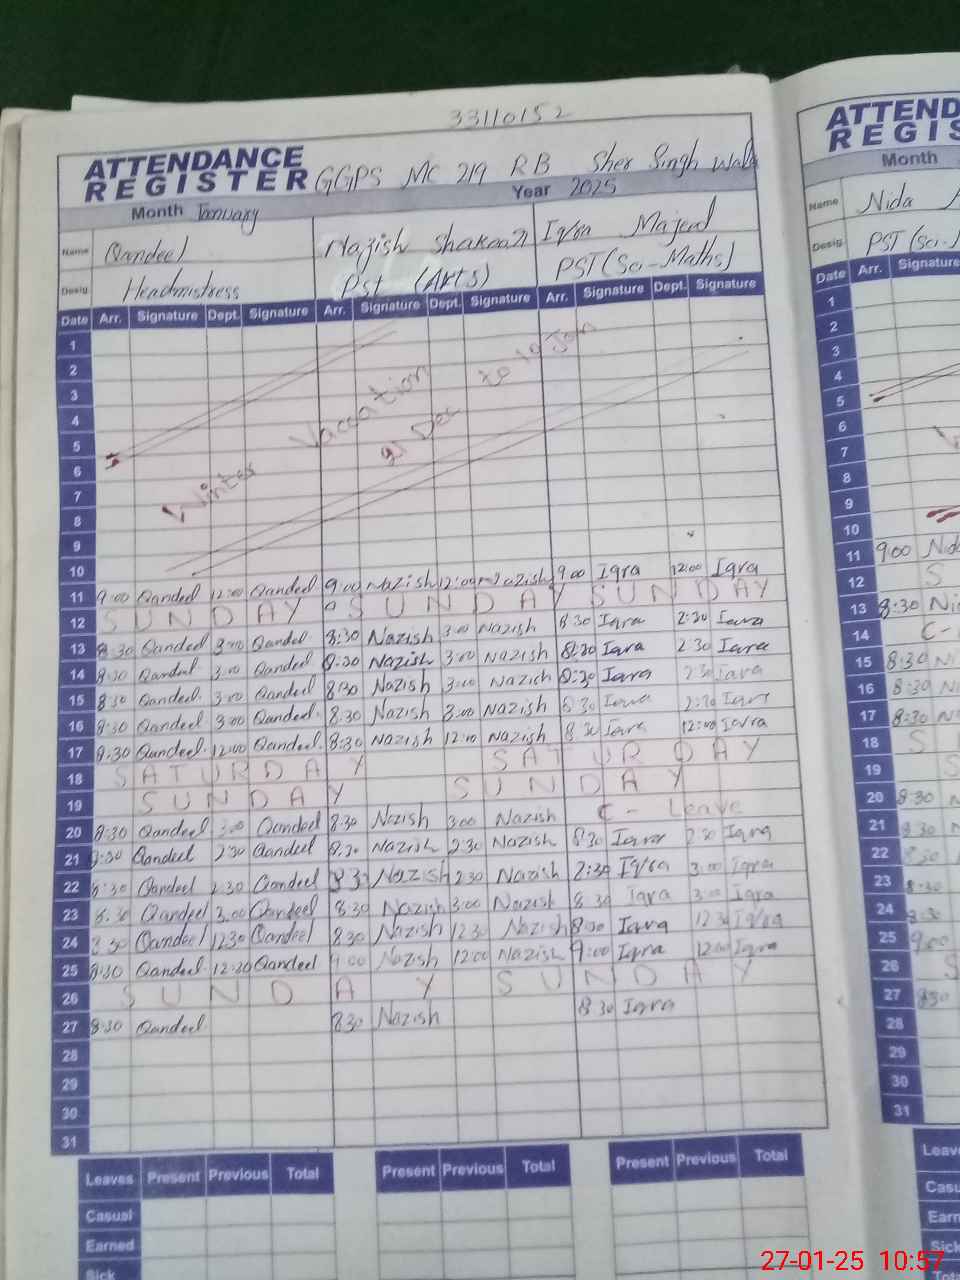 33110152
ATTENDANCE REGISTER GGPS MC 219 RB Sher Singh Wala
Month January Year 2025
Name Qandeel Nazish Shakoor Iqra Majeed
Desig. Headmistress Pst (Arts) PST (Sci-Maths)
Date Arr. Signature Dept. Signature Arr. Signature Dept. Signature Arr. Signature Dept. Signature
1
2
3
4
5
6
7
8
9
10
Winter Vacation
Dec to 10 Jan
11 9:00 Qandeel 12:00 Qandeel 9:00 Nazish 12:00 Nazish 9:00 Iqra 12:00 Iqra
12 SUNDAY SUNDAY SUNDAY
13 8:30 Qandeel 3:00 Qandeel 8:30 Nazish 3:00 Nazish 8:30 Iqra 2:30 Iqra
14 8:30 Qandeel 3:00 Qandeel 8:30 Nazish 3:00 Nazish 8:30 Iqra 2:30 Iqra
15 8:30 Qandeel 3:00 Qandeel 8:30 Nazish 3:00 Nazish 8:30 Iqra 2:30 Iqra
16 8:30 Qandeel 3:00 Qandeel 8:30 Nazish 3:00 Nazish 8:30 Iqra 2:30 Iqra
17 8:30 Qandeel 12:00 Qandeel 8:30 Nazish 12:00 Nazish 8:30 Iqra 12:00 Iqra
18 SATURDAY SATURDAY
19 SUNDAY SUNDAY
20 8:30 Qandeel 3:00 Qandeel 8:30 Nazish 3:00 Nazish C- Leave
21 8:30 Qandeel 2:30 Qandeel 8:30 Nazish 2:30 Nazish 8:30 Iqra 2:30 Iqra
22 8:30 Qandeel 2:30 Qandeel 8:30 Nazish 2:30 Nazish 2:30 Iqra 3:00 Iqra
23 8:30 Qandeel 3:00 Qandeel 8:30 Nazish 3:00 Nazish 8:30 Iqra 3:00 Iqra
24 Qandeel 12:30 Qandeel 8:30 Nazish 12:30 Nazish 8:30 Iqra 12:30 Iqra
25 8:30 Qandeel 12:30 Qandeel 9:00 Nazish 12:00 Nazish 9:00 Iqra 12:00 Iqra
26 SUNDAY SUNDAY
27 8:30 Qandeel 8:30 Nazish 8:30 Iqra
28
29
30
31
Leaves Present Previous Total Present Previous Total Present Previous Total
Casual
Earned
Sick
ATTEND
REGIS
Month
Name Nida
Desig. PST (Sci-
Date Arr. Signature
1
2
3
4
5
6
7
8
9
10
11 9:00
12 S
13 8:30
14 C-
15 8:30
16 8:30
17 8:30
18 S
19 S
20 8:30
21 8:30
22 8:30
23 8:30
24 8:30
25 9:00
26 S
27 8:30
28
29
30
31
27-01-25 10:57